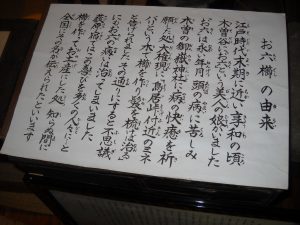 お六櫛の由来
江戸時代末期に近い享和の頃
木曽におろくという美人の娘がいました
お六は永い年月頭の病に苦しみ
木曽の御嶽神に病の快癒を祈
願の処大権現に、鳥居峠付近のミネ
バリという木で櫛を作り髪を梳けば治る
と告げられました その通りにすると不思議
になおも病は治ってしまいました
薮原宿ではこの喜びを動く人々にと
櫛を作りお土産にした処知らぬ間に
全国にその名が伝えられたといいます